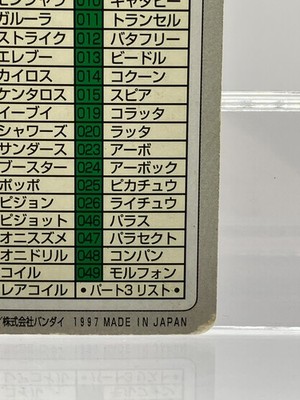 ガルーラ 011 トランセル
ストライク 012 バタフリー
エレブー 013 ビードル
カイロス 014 コクーン
ケンタロス 015 スピア
イーブイ 019 コラッタ
シャワーズ 020 ラッタ
サンダース 023 アーボ
ブースター 024 アーボック
ポッポ 025 ピカチュウ
ピジョン 026 ライチュウ
ピジョット 046 パラス
オニスズメ 047 パラセクト
オニドリル 048 コンパン
コイル 049 モルフォン
レアコイル •パート3リスト•
株式会社バンダイ 1997 MADE IN JAPAN